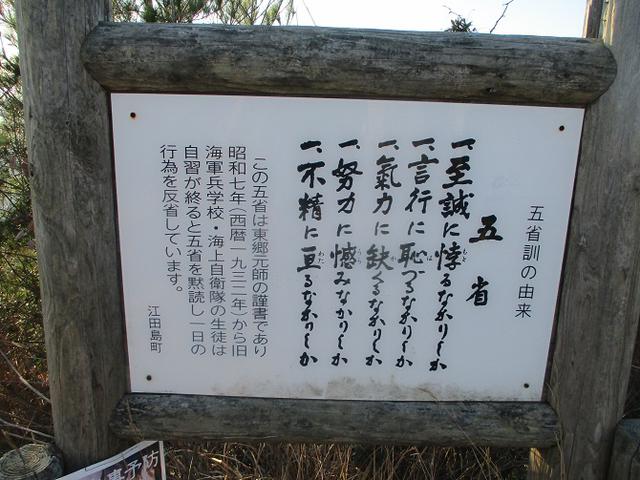 五省訓の由来
五省
一、至誠に悖るなかりしか
もと
一、言行に恥づるなかりしか
は
一、氣力に缺くるなかりしか
か
一、努力に憾みなかりしか
うら
一、不精に亘るなかりしか
わた
この五省は東郷元師の謹書であり
昭和七年（西暦一九三二年）から旧
海軍兵学校・海上自衛隊の生徒は
自習が終ると五省を黙読し一日の
行為を反省しています。
江田島町
事予防